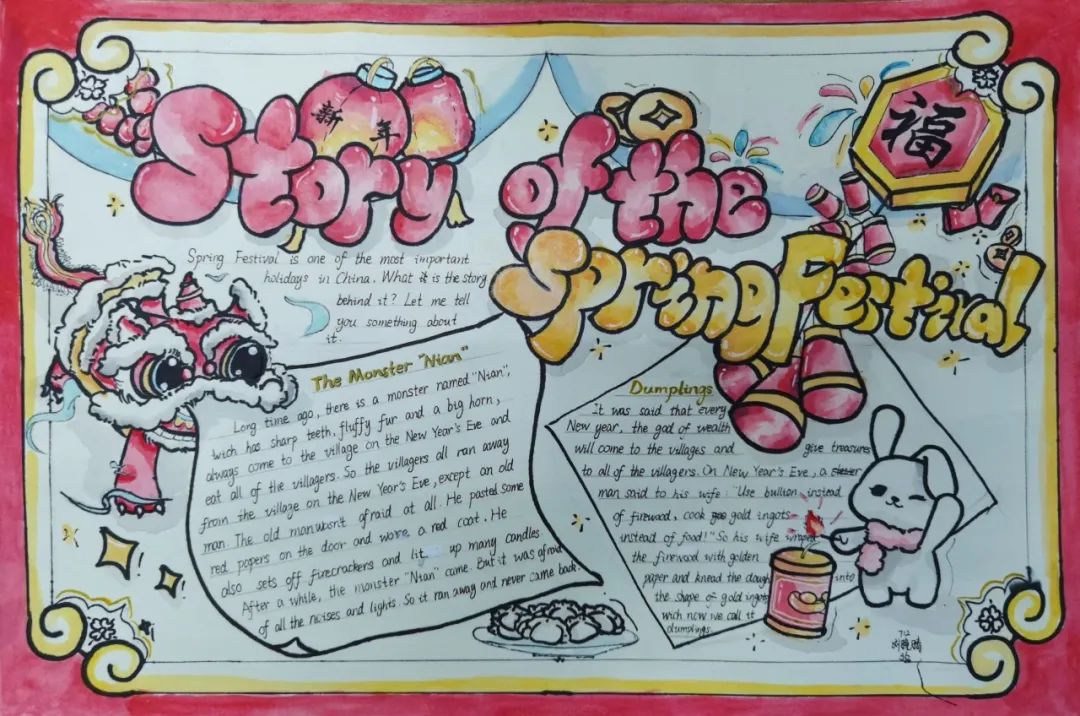 Story of the
Spring Festival
新年
福
Spring Festival is one of the most important
holidays in China. What is the story
behind it? Let me tell
you something about
it.
The Monster "Nian"
Long time ago, there is a monster named "Nian",
wich has sharp teeth, fluffy fur and a big horn,
always come to the village on the New Year's Eve and
eat all of the villagers. So the villagers all ran away
from the village on the New Year's Eve, except an old
man. The old man wasn't afraid at all. He pasted some
red papers on the door and wore a red coat. He
also sets off firecrackers and lit up many candles
After a while, the monster "Nian" came. But it was afraid
of all the noises and lights. So it ran away and never came back.
Dumplings
It was said that every
New year, the god of wealth
will come to the villages and give treasures
to all of the villagers. On New Year's Eve, a
man said to his wife: "Use bullion instead
of firewood, cook gold ingots
instead of food!" So his wife wraped
the firewood with golden
paper and knead the dough into
the shape of gold ingots
wich now we call it
dumplings.
712